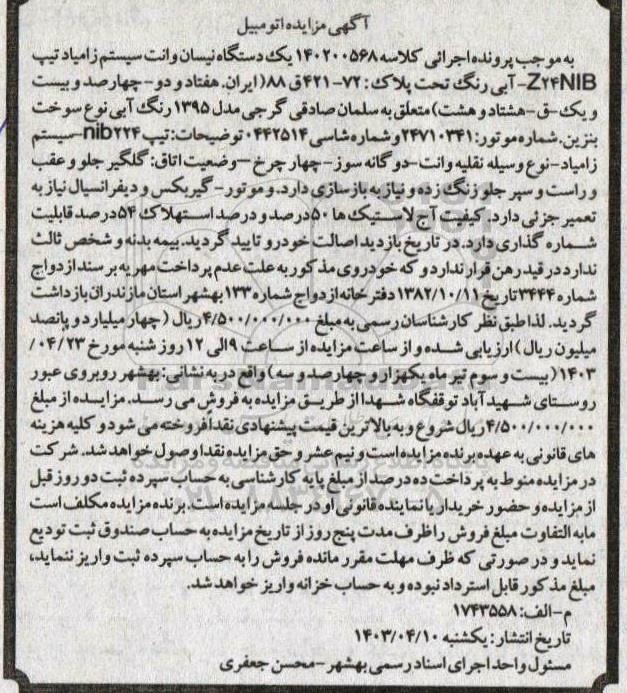 آگهی مزایده اتومبیل
به موجب پرونده اجرائی کلاسه ۱۴۰۲۰۰۵۶۸ یک دستگاه نیسان وانت سیستم زامیاد تیپ
Z۲۴NIB- آبی رنگ تحت پلاک: ۷۲-۴۲۱ق۸۸( ایران. هفتاد و دو- چهارصد و بیست
و یک-ق-هشتاد و هشت) متعلق به سلمان صادقی گرجی مدل ۱۳۹۵ رنگ آبی نوع سوخت
بنزین. شماره موتور: ۲۴۷۱۰۳۴۱ و شماره شاسی ۰۴۴۲۵۱۴ توضیحات: تیپ nib۲۲۴-سیستم
زامیاد-نوع وسیله نقلیه وانت-دوگانه سوز-چهار چرخ-وضعیت اتاق: گلگیر جلو و عقب
و راست و سپر جلو زنگ زده و نیاز به بازسازی دارد. و موتور-گیربکس و دیفرانسیال نیاز به
تعمیر جزئی دارد. کیفیت آج لاستیک ها ۵۰درصد و درصد استهلاک ۵۴درصد قابلیت
شماره گذاری دارد. در تاریخ بازدید اصالت خودرو تایید گردید. بیمه بدنه و شخص ثالث
ندارد در قید رهن قرار ندارد و که خودروی مذکور به علت عدم پرداخت مهریه بر سند ازدواج
شماره ۳۴۴۴ تاریخ ۱۳۸۲/۱۰/۱۱ دفترخانه ازدواج شماره ۱۳۳ بهشهر استان مازندران بازداشت
گردید. لذا طبق نظر کارشناسان رسمی به مبلغ ۴/۵۰۰/۰۰۰/۰۰۰ ریال ( چهار میلیارد و پانصد
میلیون ریال) ارزیابی شده و از ساعت مزایده از ساعت ۹ الی ۱۲ روز شنبه مورخ ۰۴/۲۳/
۱۴۰۳ (بیست و سوم تیر ماه یکهزار و چهارصد و سه) واقع در به نشانی: بهشهر روبروی عبور
روستای شهیدآباد توقفگاه شهدا از طریق مزایده به فروش می رسد. مزایده از مبلغ
۴/۵۰۰/۰۰۰/۰۰۰ ریال شروع و به بالاترین قیمت پیشنهادی نقدا فروخته می شود و کلیه هزینه
های قانونی به عهده برنده مزایده است و نیم عشر و حق مزایده نقدا وصول خواهد شد. شرکت
در مزایده منوط به پرداخت ده درصد از مبلغ پایه کارشناسی به حساب سپرده ثبت دو روز قبل
از مزایده و حضور خریدار یا نماینده قانونی او در جلسه مزایده است. برنده مزایده مکلف است
مابه التفاوت مبلغ فروش را ظرف مدت پنج روز از تاریخ مزایده به حساب صندوق ثبت تودیع
نماید و در صورتی که ظرف مهلت مقرر مانده فروش را به حساب سپرده ثبت واریز ننماید،
مبلغ مذکور قابل استرداد نبوده و به حساب خزانه واریز خواهد شد.
م-الف: ۱۷۴۳۵۵۸
تاریخ انتشار: یکشنبه ۱۴۰۳/۰۴/۱۰
مسئول واحد اجرای اسناد رسمی بهشهر-محسن جعفری